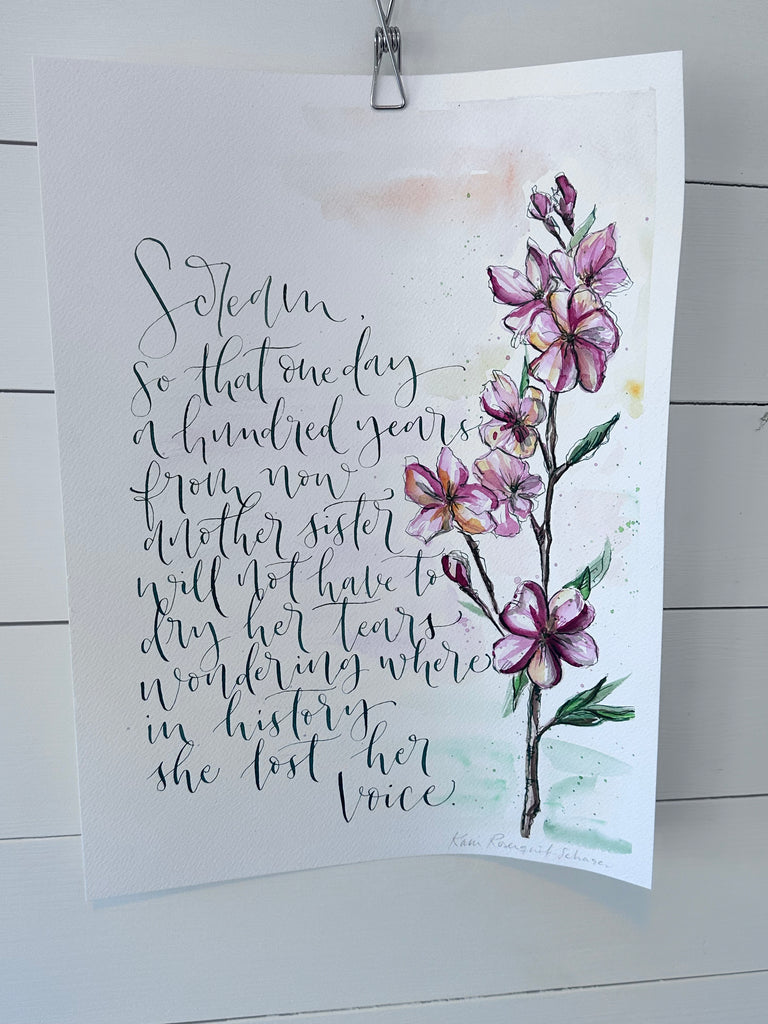 Scream,
so that one day
a hundred years
from now
another sister
will not have to
dry her tears
wondering where
in history
she lost her
voice.